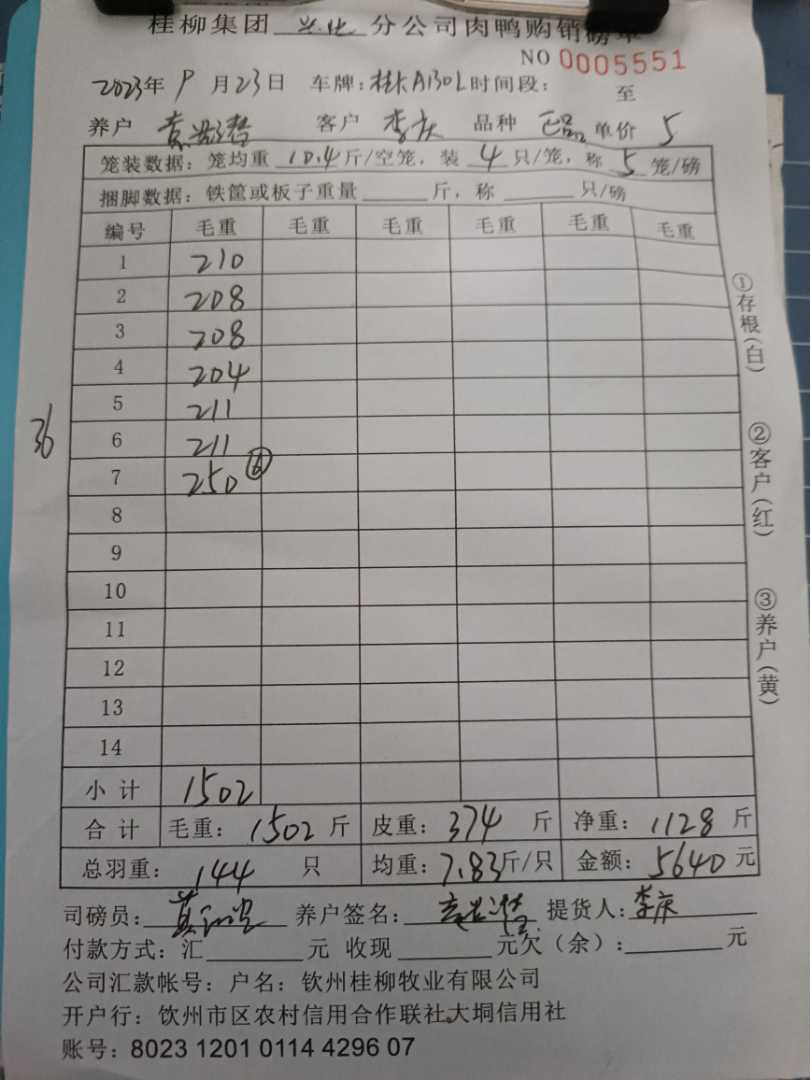 桂柳集团 兴化 分公司肉鸭购销磅单
NO 0005551
2023年 9 月 23日 车牌：桂A130L 时间段： 至
养户 客户 李庆 品种 正品 单价 5
笼装数据：笼均重 10.4 斤/空笼，装 4 只/笼，称 5 笼/磅
捆脚数据：铁筐或板子重量 斤，称 只/磅
编号 毛重 毛重 毛重 毛重 毛重 毛重
1 210
2 208
3 208
4 204
5 211
36
6 211
7 250 ⑥
8
9
10
11
12
13
14
小计 1502
合计 毛重：1502 斤 皮重：374 斤 净重：1128 斤
总羽重：144 只 均重：7.83斤/只 金额：5640 元
司磅员： 养户签名： 提货人：李庆
付款方式：汇 元 收现 元欠（余）： 元
公司汇款帐号：户名：钦州桂柳牧业有限公司
开户行：钦州市区农村信用合作联社大垌信用社
账号：8023 1201 0114 4296 07
①存根（白）
②客户（红）
③养户（黄）